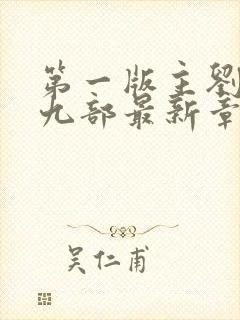 第一版主劉
九部最新章
吴仁甫